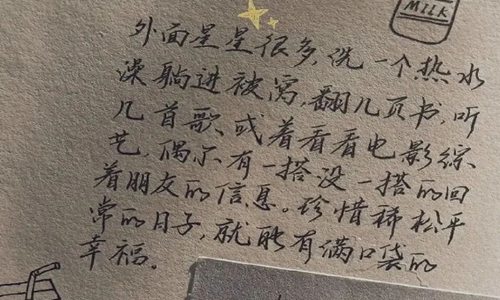 MILK
外面星星很多,洗一个热水
澡躺进被窝,翻几页书,听
几首歌或着看看电影综
艺,偶尔有一搭没一搭的回
着朋友的信息。珍惜稀松平
常的日子,就能有满口袋的
幸福.